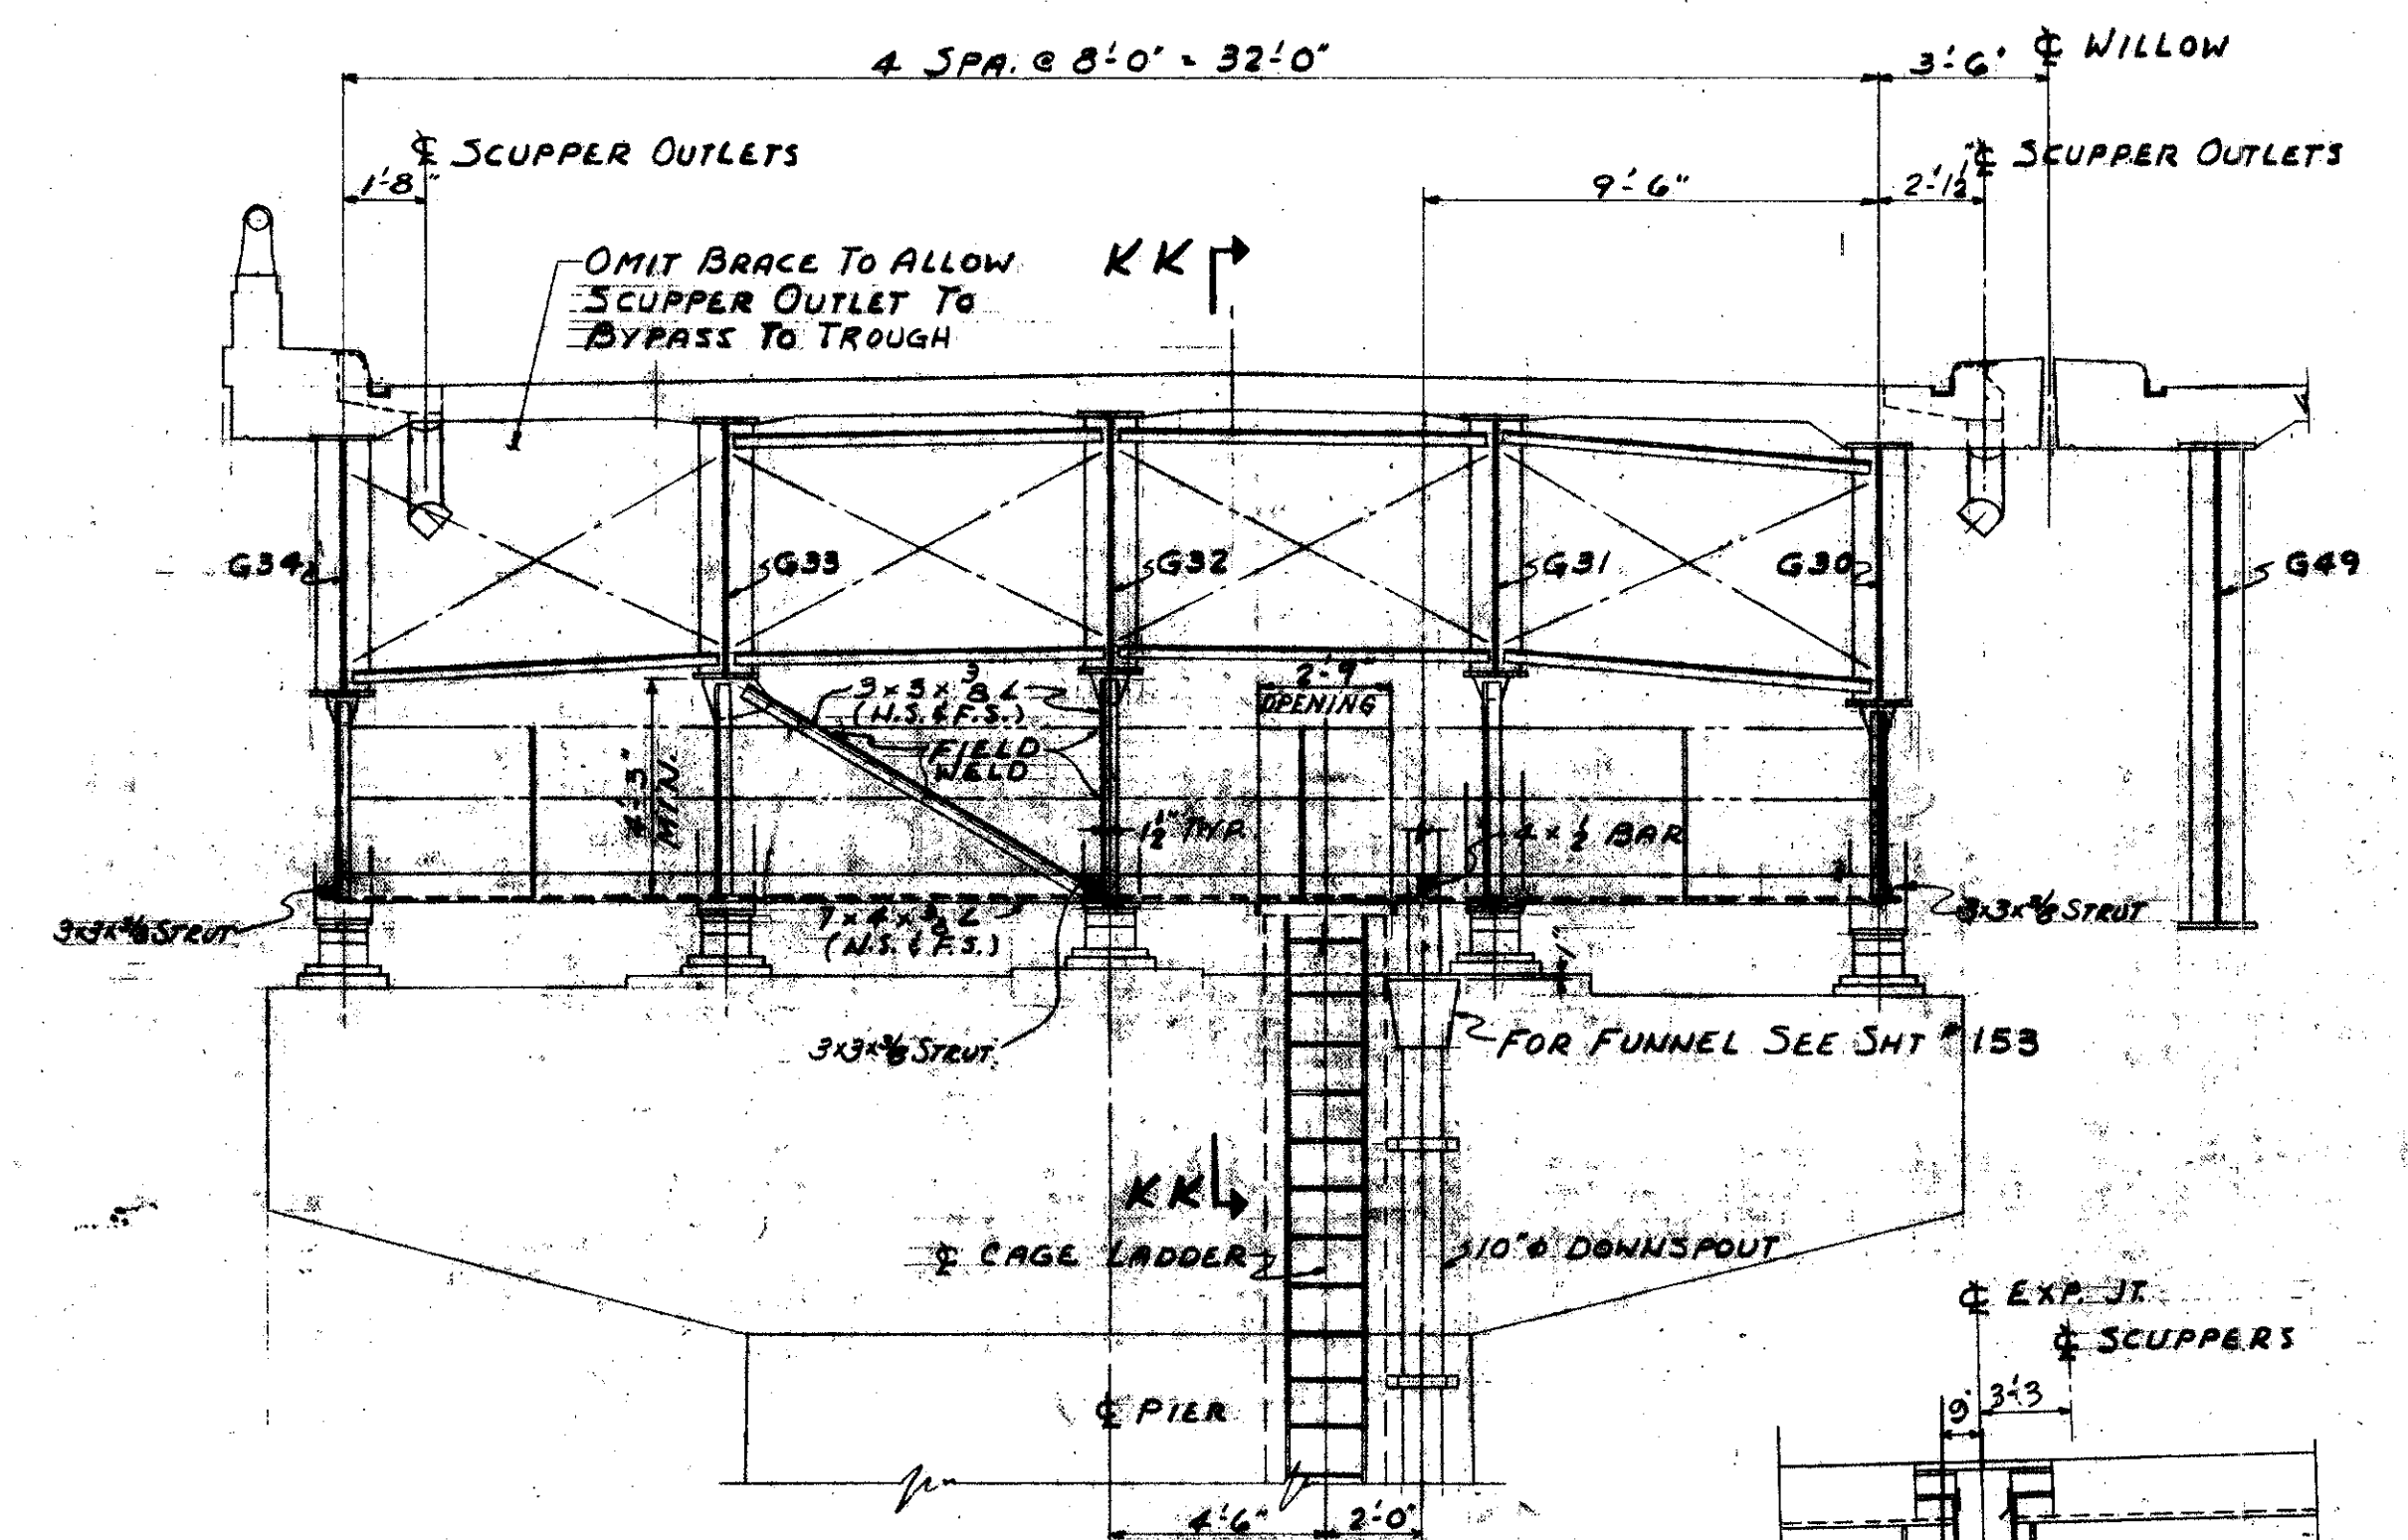 4 SPA. @ 8'-0" = 32'-0"
3'-6"
℄ WILLOW
℄ SCUPPER OUTLETS
1'-8"
9'-6"
2'-1½"
℄ SCUPPER OUTLETS
OMIT BRACE TO ALLOW
SCUPPER OUTLET TO
BYPASS TO TROUGH
KK
G34
G33
G32
G31
G30
G49
3 x 3 x 3/8 L
(N.S. & F.S.)
2'-9"
OPENING
FIELD
WELD
4'-3"
MIN.
1½" TYP.
4 x ½ BAR
3x3x3/8 STRUT
7 x 4 x 3/8 L
(N.S. & F.S.)
3x3x3/8 STRUT
1"
3x3x3/8 STRUT
FOR FUNNEL SEE SHT # 153
KK
℄ CAGE LADDER
10"ø DOWNSPOUT
℄ EXP. JT.
℄ SCUPPERS
℄ PIER
9"
3'-3
4'-6"
2'-0"